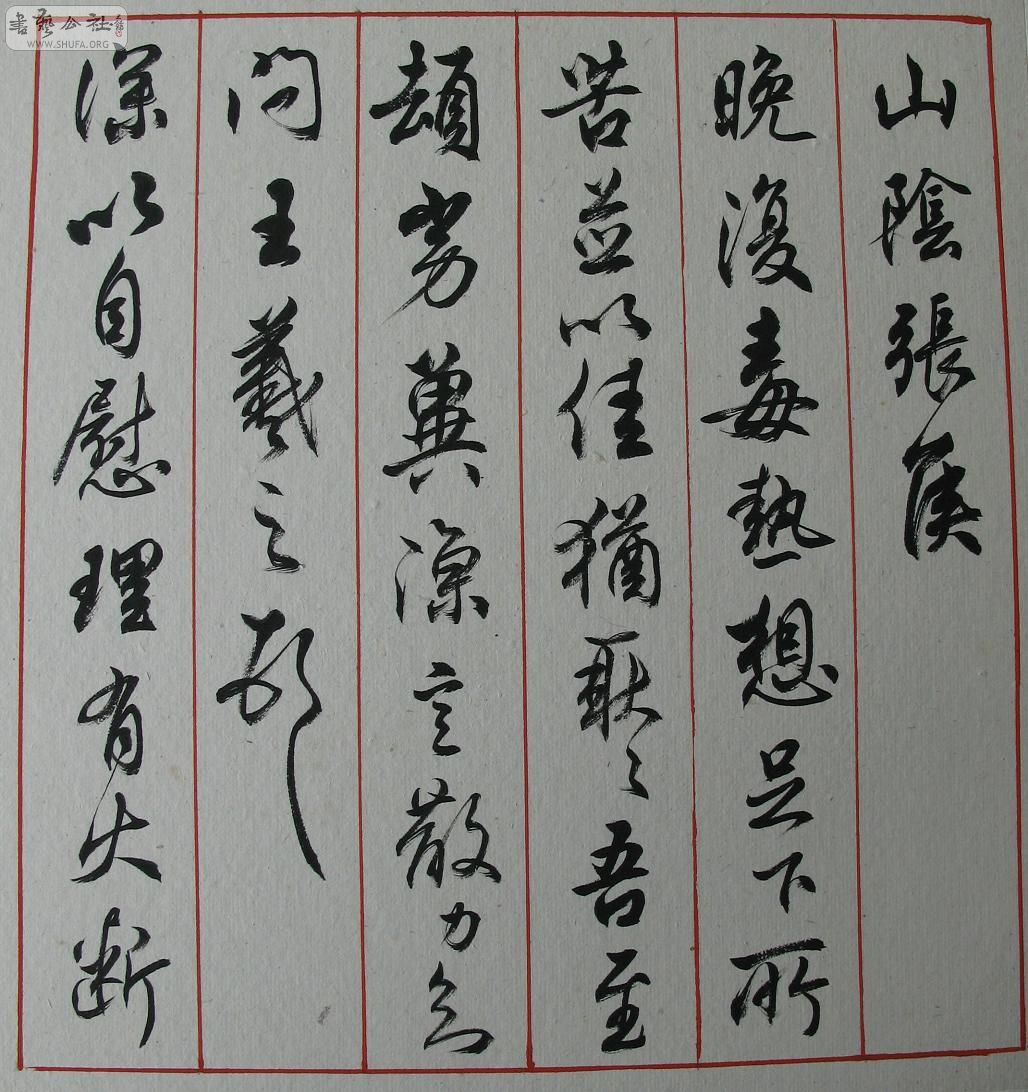 山陰張侯
晚復毒熱想足下所
苦並以佳猶耿々吾至
頓劣冀涼言散力知
問王羲之頓
深以自慰理有大斷
書藝公社
WWW.SHUFA.ORG